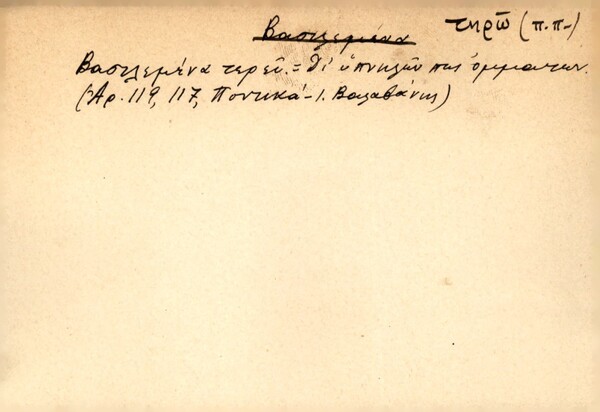 Βασιλεμένα τηρῶ (π.π-)
Βασιλεμένα τερεῖ. = δι' ὑπνηλῶν πως ὀμμάτων.
(Ἀρ. 119, 117, Ποντικά - Ι. Βαλαβάνης)